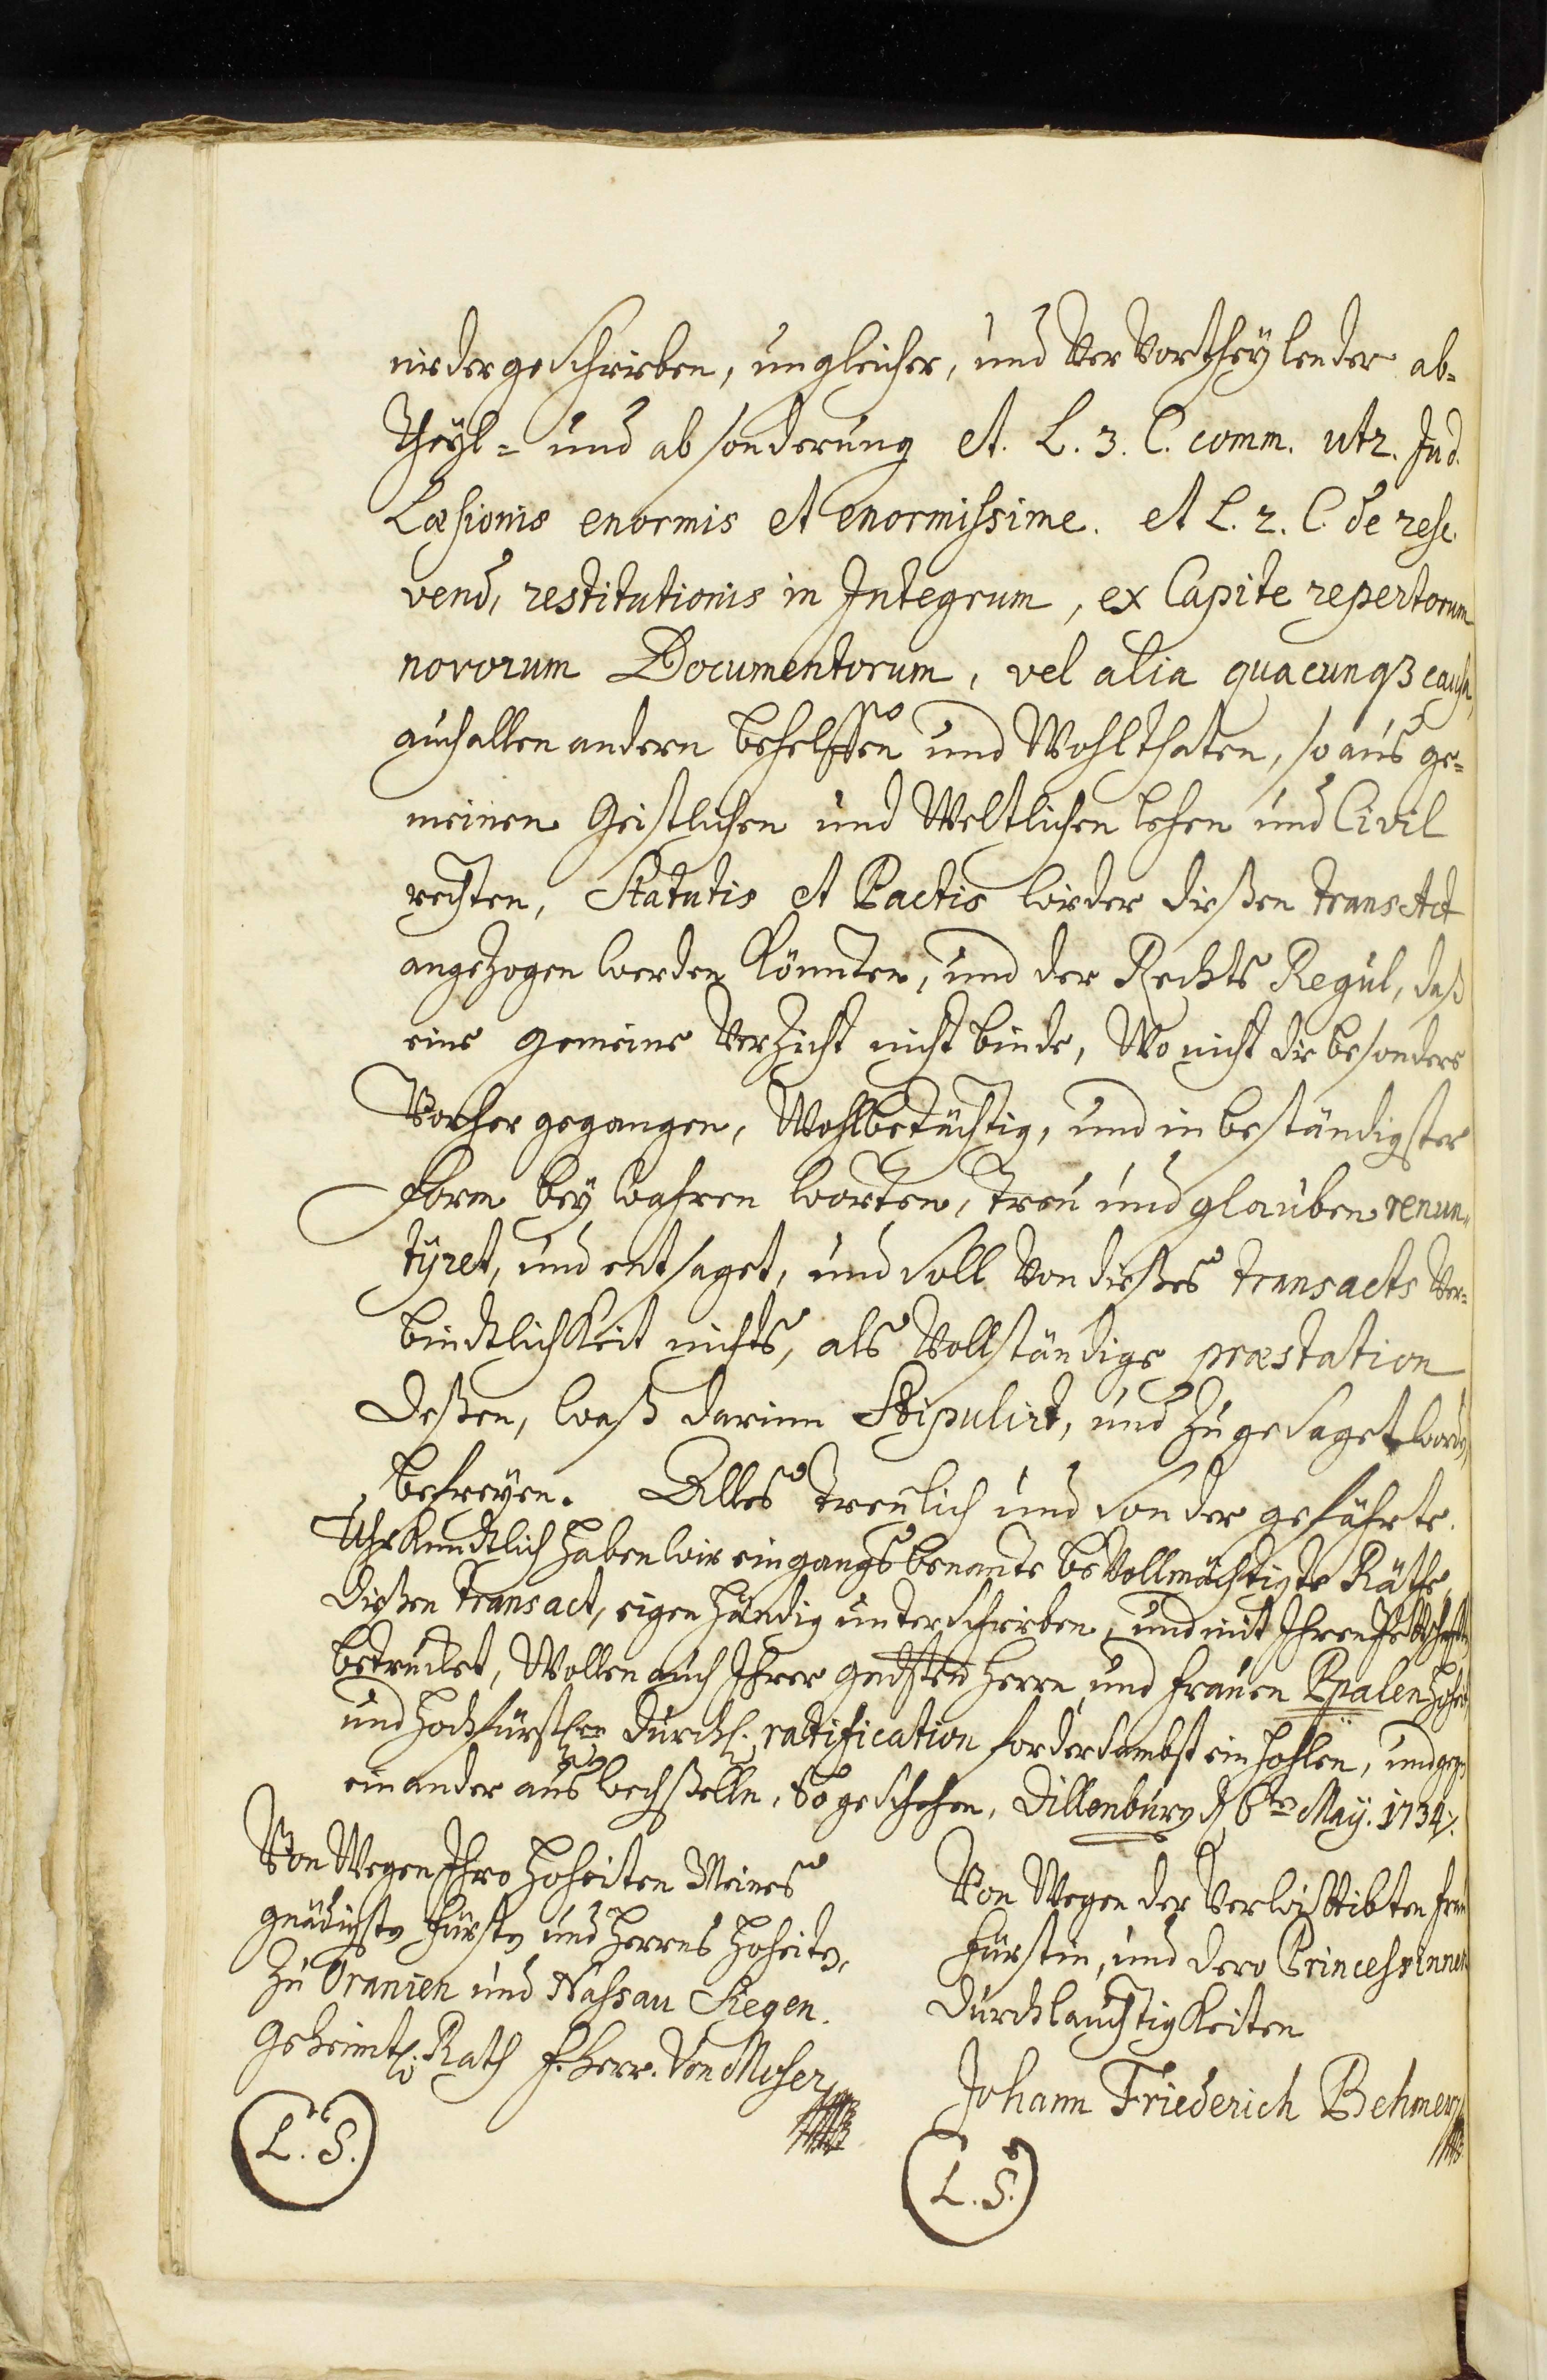 niedergeschrieben, ungleicher, und Ver Vortheylender ab-
theyl- und absonderung et. L. 3. C. comm. utr. Jud.
Læsionis enormis et enormissime. et L. 2. C. de resc.
vend, restitutionis in Integrum, ex Capite repertorum
novorum Documentorum, vel alia quacunqȝ causa,
auch allen andern behelffen und Wohlthaten, so aus ge-
meinen Geistlichen und Weltlichen lehen und Civil
rechten, Statutis et Pactis wieder dießen transact
angezogen werden Könnten, und der Rechts Regul, daß
eine gemeine Verzicht nicht binde, Wo nicht die besondere
Vorher gegangen, Wohlbedächtig, und in beständigster
form bey wahren worten, treu und glauben renun-
tyret, und entsaget, und soll Von dießes transacts Ver-
bindtlichKeit nichts, als Vollständige præstation
deßen, waß darinn Stipulirt, und zugesaget word,
befreyen. Alles treulich und sonder gefährte.
UhrKundtlich haben wir eingangs benante beVollmächtigte Räthe,
dießen transact, eigenhändig unterschrieben, und mit Ihren Pettschafft
betrucket, Wollen auch Ihrer gndsten Herrn und frauen Rgalen Hoheit
und Hochfürstlen Durchl: ratification fordersambst einhohlen, und gegen
einander auswechßelln, So geschehen, Dillenburg d 6ten May. 1734.
Von Wegen Ihro Hoheiten Meines
gnädigsten fürsten und Herrns Hoheiten,
Zu Oranien und Nassau Siegen.
Geheimbl: Rath f. herr. Von Moser
L. S.
Von Wegen der Verwittibten frau
fürstin, und dero Princessinnen
Durchlauchtigkeiten
Johann Friederich Behmer
L. S.